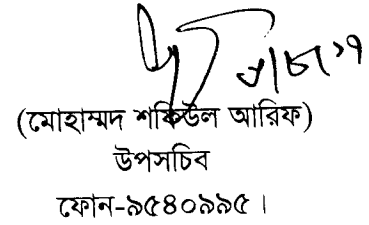 (মোহাম্মদ শফিউল আরিফ)
উপসচিব
ফোন-৯৫৪০৯৯৫।